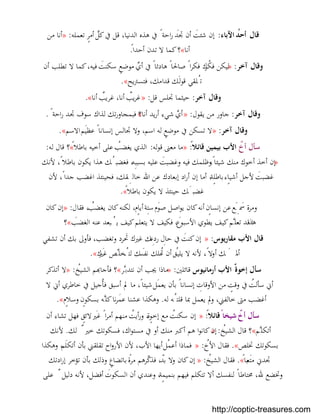 قال أحد الآباء: إن شئت أن تجد راحة في هذه الدنيا، قل في كل أمرٍ تعمله: «أنا من
أنا»؟ كما لا تدن أحداً.
وقال آخر: «ليكن فكرك فكراً صالحاً هادئاً في أي موضعٍ سكنت فيه، كما لا تطلب أن
تلقي قولك قدامك، فتستريح».
وقال آخر: حيثما تجلس قل: «غريبٌ أنا، غريبٌ أنا».
وقال آخر: جاور من يقول: «أي شيء أريد أنا؟ فمجاورتك لذاك سوف تجد راحة».
وقال آخر: «لا تسكن في موضعٍ له اسم، ولا تجالس إنساناً عظيم الاسم».
سأل أخٌ الأب بيمين قائلاً: «ما معنى قوله: الذي يغضب على أخيه باطلاً»؟ قال له:
«إن أخذ أخوك منك شيئاً وظلمك فيه وغضبت عليه بسببه فغضبك هذا يكون باطلاً، لأنك
غضبت لأجل أشياء باطلةٍ أما إن أراد إبعادك عن الله خالقك، فحينئذ اغضب جداً، لأن
غضبك حينئذ لا يكون باطلاً».
ومرة سمع عن إنسان أنه كان يواصل صوم ستة أيامٍ، لكنه كان يغضب، فقال: «إن كان
هذا قد تعلَّم كيف يطوي الأسبوع، فكيف لا يتعلم كيف يُبعد عنه الغضب»؟
قال الأب مقاريوس: «إن كنت في حال ردعك غيرك تحرد وتغضب، فأولى بك أن تشفي
أملك أولاً، لأنه لا يليق أن تُهلك نفسك لتخلِّص غيرك».
سأل إخوةٌ الأب أرمانيوس قائلين: «ماذا يجب أن نتدبَّر»؟ فأجابهم الشيخ: «لا أتذكر
أني سألت في وقتٍ من الأوقات إنساناً بأن يعمل شيئاً، ما لم أسبق فأُجيل في خاطري أني لا
أغضب متى خالفني، ولم يعمل بما قلته له. وهكذا عشنا عمرنا كله بسكونٍ وسلامٍ».
سأل أخٌ شيخاً قائلاً: «إن سكنت مع إخوةٍ ورأيت منهم أمراً غير لائقٍ فهل تشاء أن
أتكلم»؟ فقال الشيخ: «إن كانوا هم أكبر منك أو في مستواك، فسكوتك خيرٌ لك. لأنك
بسكوتك تخلص». فقال الأخ: «فماذا أعمل أيها الأب، لأن الأرواح تقلقني بأن أتكلم وهكذا
تجدني متعباً». فقال الشيخ: «إن كان ولا بد فذكِّرهم مرةً باتضاعٍ وذلك بأن تؤخر إرادتك
وتخضع لله، محتاطاً لنفسك ألا تتكلم فيهم بنميمةٍ وعندي أن السكوت أفضل، لأنه دليل على
http://coptic-treasures.com